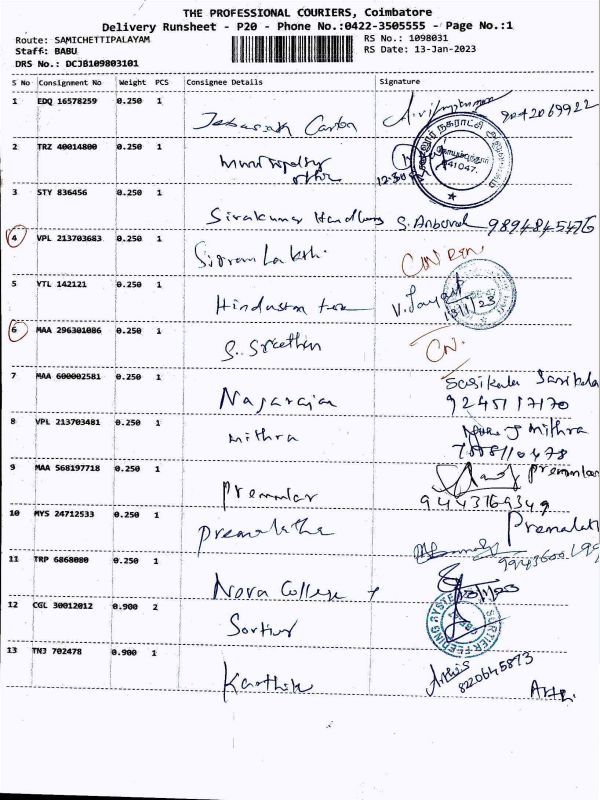 THE PROFESSIONAL COURIERS, Coimbatore
Delivery Runsheet - P20 - Phone No.:0422-3505555 - Page No.:1
Route: SAMICHETTIPALAYAM RS No.: 1098031
Staff: BABU RS Date: 13-Jan-2023
DRS No.: DCJB109803101
S No Consignment No Weight PCS Consignee Details Signature
1 EDQ 16578259 0.250 1 9042069922
2 TRZ 40014800 0.250 1 641047. 12:30
3 STY 836456 0.250 1 Sivakumar S. Anbuval 9894845476
4 VPL 213703683 0.250 1 Sriram Lakshi CN RTN
5 YTL 142121 0.250 1 Hindustan 13/1/23
6 MAA 296301086 0.250 1 S. Sreethin CN.
7 MAA 600002581 0.250 1 Nagarajan Sasikala Sasikala
9245117170
8 VPL 213703481 0.250 1 mithra mithra
9 MAA 568197718 0.250 1 Premular premular
9443169349
10 MYS 24712533 0.250 1 Premalatha Premalath
11 TRP 6868080 0.250 1 Nova College 13/1/23
12 CGL 30012012 0.900 2 Sortier SORTIER FEEDING SYSTE
13 TNJ 702478 0.900 1 Karthik 8220645873